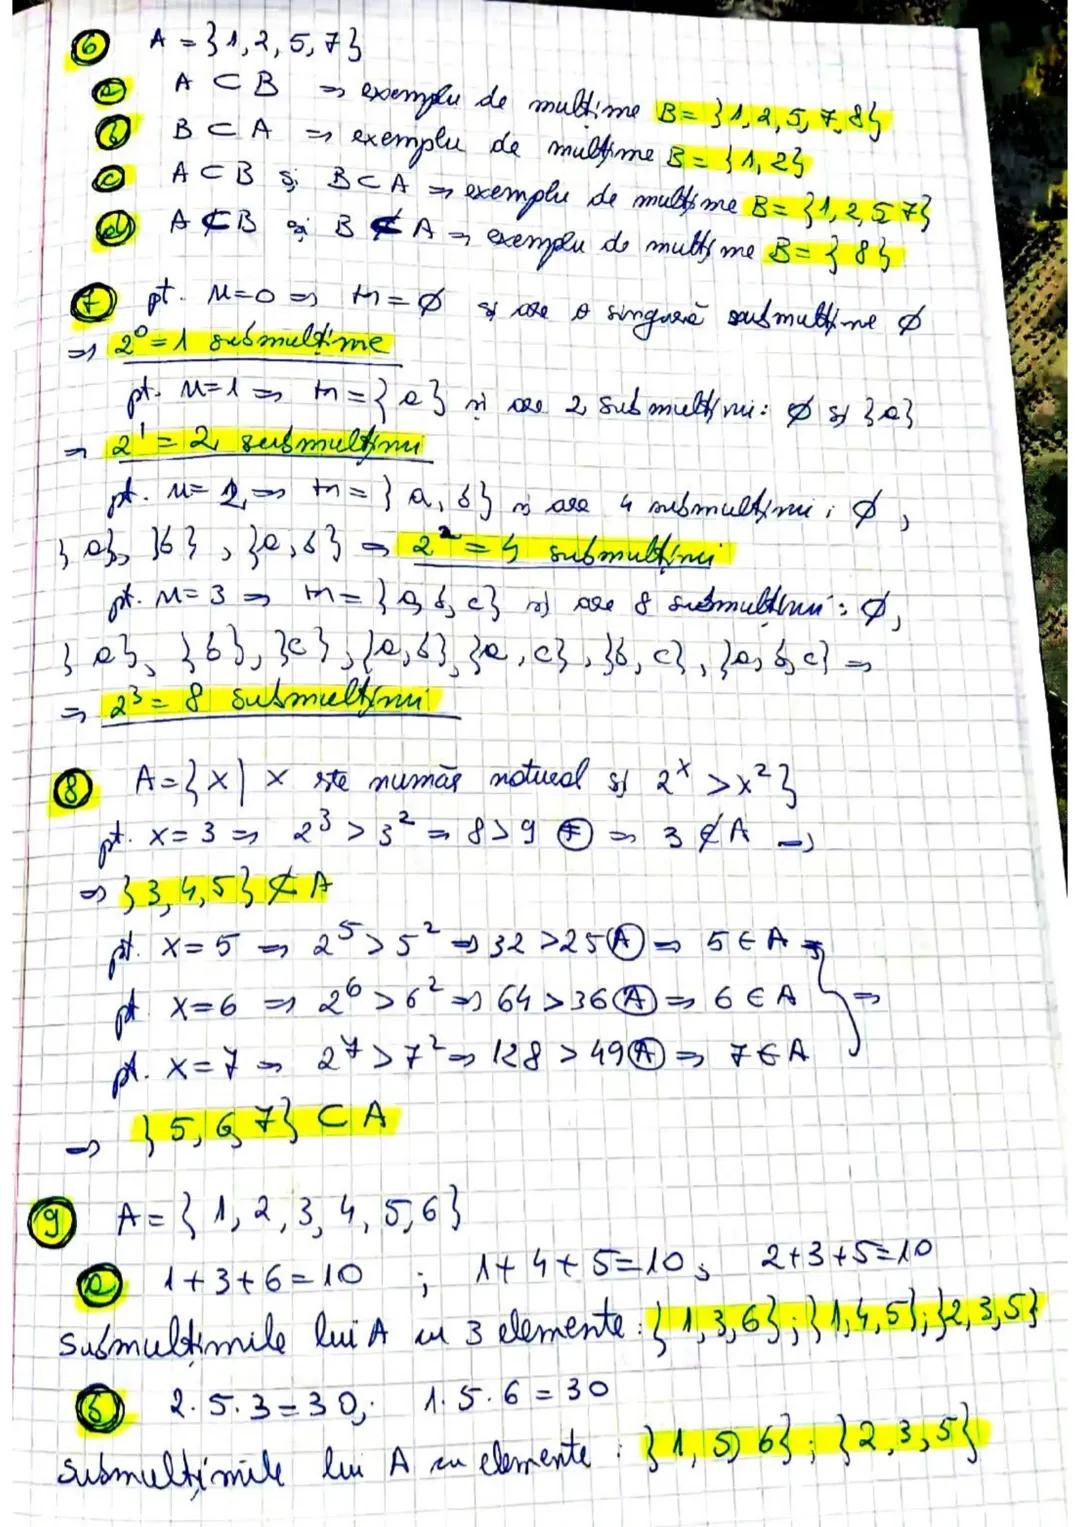 6 A = {1, 2, 5, 7}
a A ⊂ B ⇒ exemplu de mulțime B = {1, 2, 5, 7, 8}
b B ⊂ A ⇒ exemplu de mulțime B = {1, 2}
c A ⊂ B și B ⊂ A ⇒ exemplu de mulțime B = {1, 2, 5, 7}
d A ⊄ B și B ⊄ A ⇒ exemplu de mulțime B = {8}
7 pt. n=0 ⇒ m = ∅ și are o singură submulțime ∅
⇒ 2⁰ = 1 submulțime
pt. n=1 ⇒ m = {a} și are 2 submulțimi: ∅ și {a}
⇒ 2¹ = 2 submulțimi
pt. n=2 ⇒ m = {a, b} și are 4 submulțimi: ∅,
{a}, {b}, {a, b} ⇒ 2² = 4 submulțimi
pt. n=3 ⇒ m = {a, b, c} și are 8 submulțimi: ∅,
{a}, {b}, {c}, {a, b}, {a, c}, {b, c}, {a, b, c} ⇒
⇒ 2³ = 8 submulțimi
8 A = {x | x este număr natural și 2ˣ > x²}
pt. x = 3 ⇒ 2³ > 3² ⇒ 8 > 9 F ⇒ 3 ∉ A ⇒
⇒ {3, 4, 5} ⊄ A
pt. x = 5 ⇒ 2⁵ > 5² ⇒ 32 > 25 A ⇒ 5 ∈ A
pt. x = 6 ⇒ 2⁶ > 6² ⇒ 64 > 36 A ⇒ 6 ∈ A } ⇒
pt. x = 7 ⇒ 2⁷ > 7² ⇒ 128 > 49 A ⇒ 7 ∈ A
⇒ {5, 6, 7} ⊂ A
9 A = {1, 2, 3, 4, 5, 6}
a 1+3+6=10 ; 1+4+5=10; 2+3+5=10
Submulțimile lui A cu 3 elemente: {1, 3, 6}; {1, 4, 5}; {2, 3, 5}
b 2·5·3=30; 1·5·6=30
Submulțimile lui A cu elemente: {1, 5, 6}; {2, 3, 5}